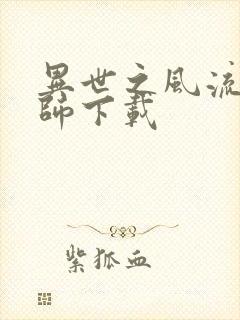 異世之風流
師下載
紫狐血